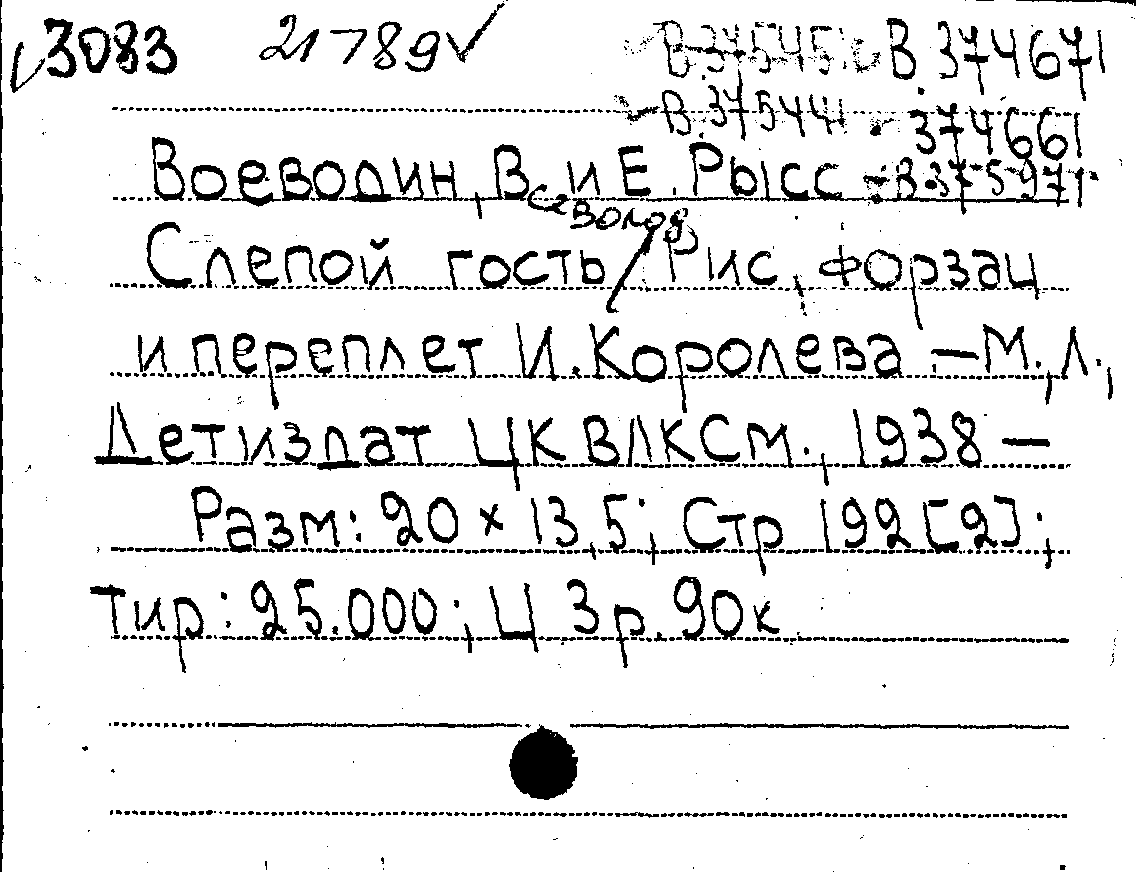 3083 21789 В.375451 В.374671
В.375441 374661
Воеводин, В. и Е. Рысс - В.375971
севолод
Слепой гость / Рис, форзац
и переплет И. Королева. - М., Л.,
Детиздат ЦК ВЛКСМ., 1938 —
Разм: 20 x 13,5; Стр 192 [2];
Тир: 25.000; Ц 3 р. 90 к